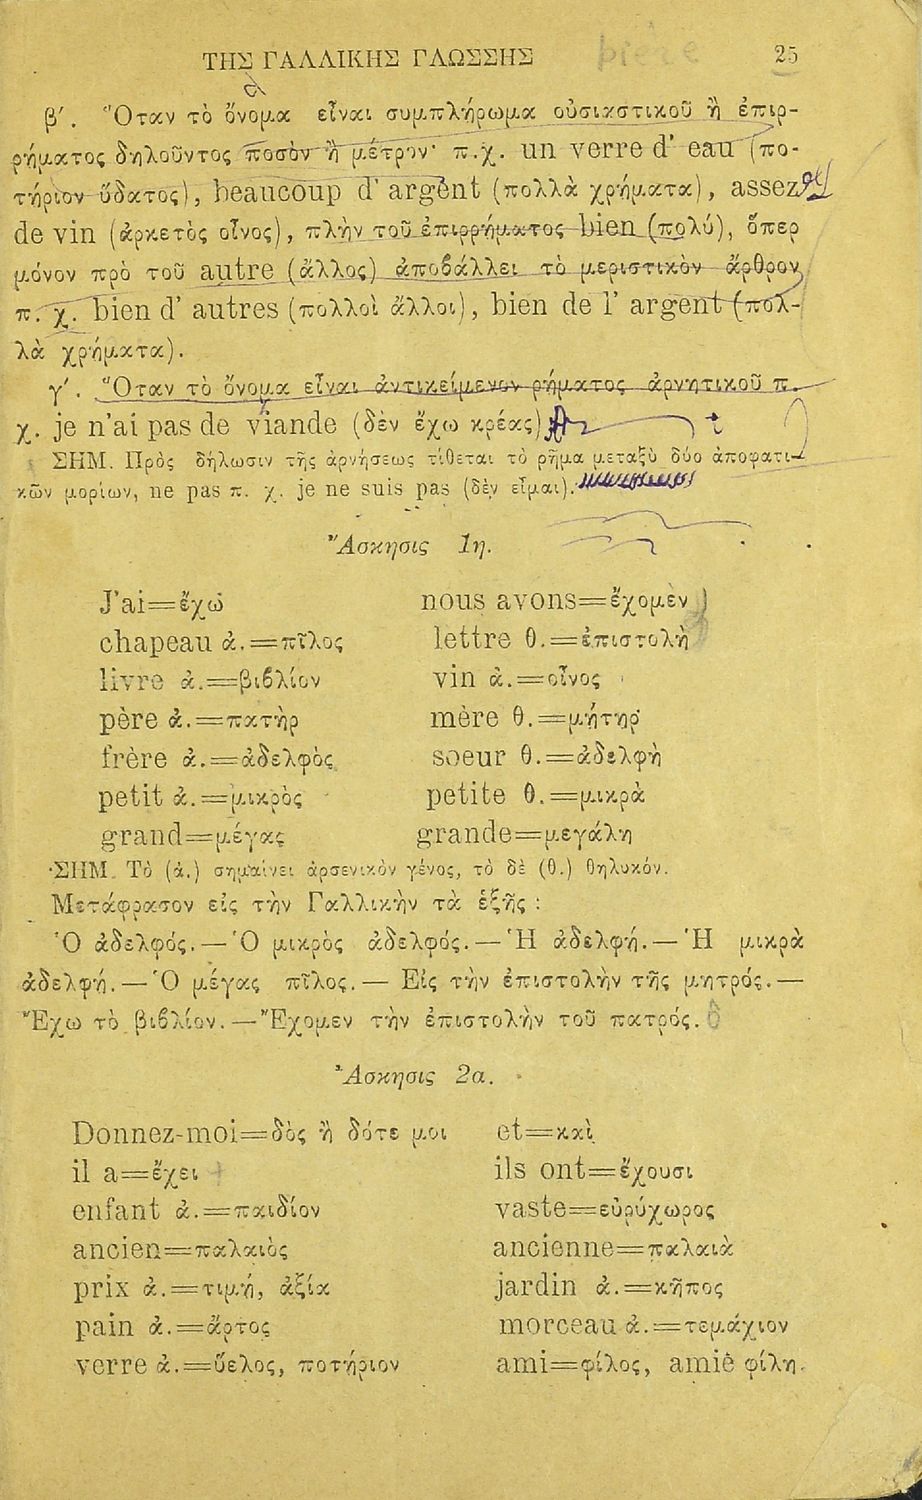 ΤΗΣ ΓΑΛΛΙΚΗΣ ΓΛΩΣΣΗΣ 25
β΄. Ὅταν τὸ ὄνομα εἶναι συμπλήρωμα οὐσιαστικοῦ ἢ ἐπιρ-
ρήματος δηλοῦντος ποσὸν ἢ μέτρον· π.χ. un verre d' eau (πο-
τήριον ὕδατος), beaucoup d' argent (πολλὰ χρήματα), assez
de vin (ἀρκετὸς οἶνος), πλὴν τοῦ ἐπιρρήματος bien (πολύ), ὅπερ
μόνον πρὸ τοῦ autre (ἄλλος) ἀποβάλλει τὸ μεριστικὸν ἄρθρον,
π. χ. bien d' autres (πολλοὶ ἄλλοι), bien de l' argent (πολ-
λὰ χρήματα).
γ΄. Ὅταν τὸ ὄνομα εἶναι ἀντικείμενον ρήματος ἀρνητικοῦ π.
χ. je n'ai pas de viande (δὲν ἔχω κρέας)
ΣΗΜ. Πρὸς δήλωσιν τῆς ἀρνήσεως τίθεται τὸ ρῆμα μεταξὺ δύο ἀποφατι-
κῶν μορίων, ne pas π. χ. je ne suis pas (δὲν εἶμαι).
Ἄσκησις 1η.
J'ai=ἔχω nous avons=ἔχομεν
chapeau ἀ.=πῖλος lettre θ.=ἐπιστολὴ
livre ἀ.=βιβλίον vin ἀ.=οἶνος
père ἀ.=πατὴρ mère θ.=μήτηρ
frère ἀ.=ἀδελφὸς soeur θ.=ἀδελφὴ
petit ἀ.=μικρὸς petite θ.=μικρὰ
grand=μέγας grande=μεγάλη
ΣΗΜ. Τὸ (ἀ.) σημαίνει ἀρσενικὸν γένος, τὸ δὲ (θ.) θηλυκόν.
Μετάφρασον εἰς τὴν Γαλλικὴν τὰ ἑξῆς :
Ὁ ἀδελφός.—Ὁ μικρὸς ἀδελφός.—Ἡ ἀδελφή.—Ἡ μικρὰ
ἀδελφή.—Ὁ μέγας πῖλος.— Εἰς τὴν ἐπιστολὴν τῆς μητρός.—
Ἔχω τὸ βιβλίον.—Ἔχομεν τὴν ἐπιστολὴν τοῦ πατρός.
Ἄσκησις 2α.
Donnez-moi=δὸς ἢ δότε μοι et=καὶ
il a=ἔχει ils ont=ἔχουσι
enfant ἀ.=παιδίον vaste=εὐρύχωρος
ancien=παλαιὸς ancienne=παλαιὰ
prix ἀ.=τιμή, ἀξία jardin ἀ.=κῆπος
pain ἀ.=ἄρτος morceau ἀ.=τεμάχιον
verre ἀ.=ὕελος, ποτήριον ami=φίλος, amie φίλη.